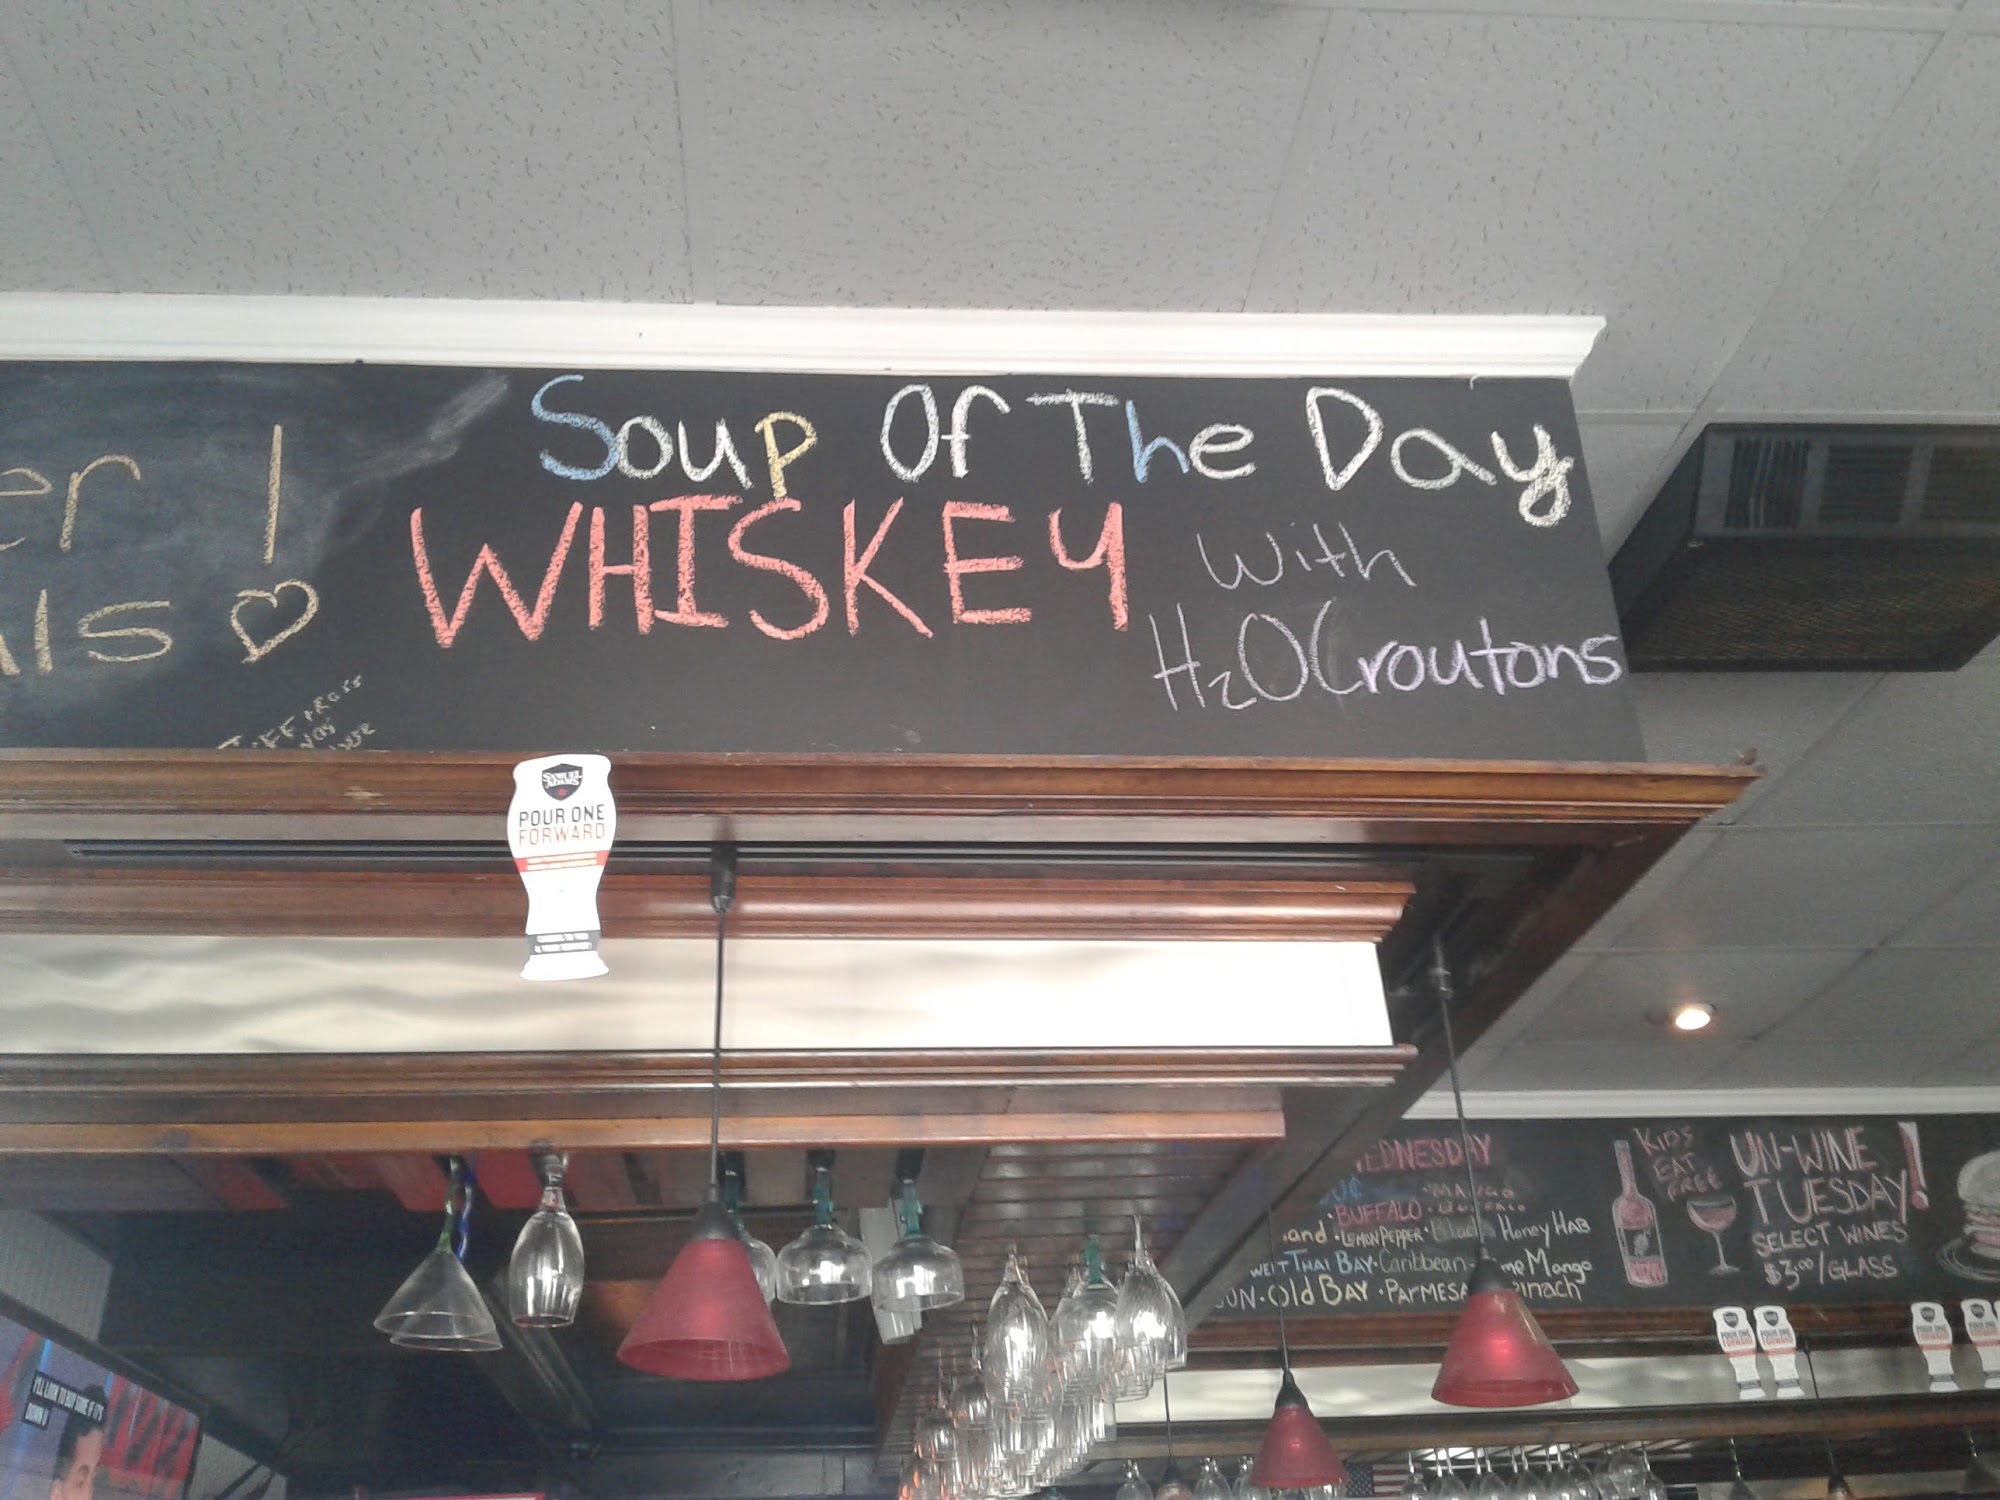 Soup Of The Day
WHISKEY With
H₂O Croutons
er !
ls ♡
SAMUEL
ADAMS
POUR ONE
FORWARD
WEDNESDAY
MANGO
BUFFALO
and · LEMON PEPPER · Honey HAB
THAI BAY · Caribbean · Mango
Old BAY · PARMESA
KIDS
EAT
FREE
UN-WINE
TUESDAY!
SELECT WINES
$3.00/GLASS
I'LL LOOK TO BUY SOME IF IT'S
DOWN U
POUR ONE
FORWARD
POUR ONE
FORWARD
POUR ONE
FORWARD